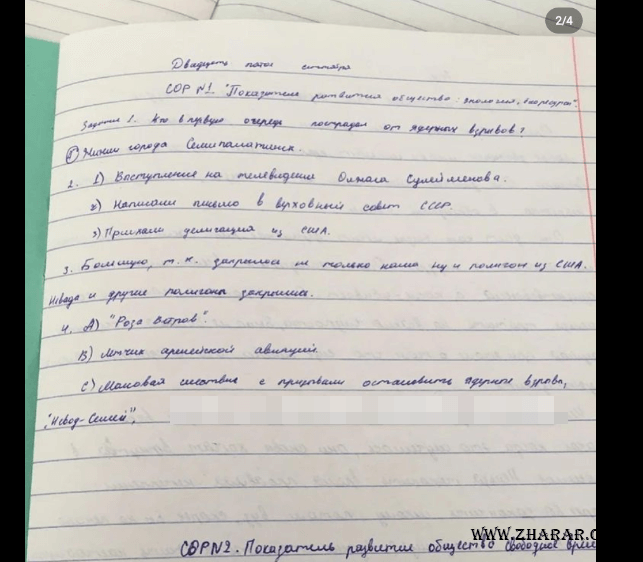 2/4
Двадцать пятое сентября
СОР №1 "Показатели развития общества: экология,
Задание 1. Кто в первую очередь пострадал от ядерных взрывов?
Б) Жители города Семипалатинск.
2. 1) Выступление на телевидении Олжаса Сулейменова.
2) Написали письмо в верховный совет СССР.
3) Приехали делигация из США.
3. Большую, т.к. закрылся не только наш ну и полигон из США.
Невада и другие полигоны закрылись.
4. А) "Роза ветров".
В) Лётчик армейской авиации
С) с призывами остановить ядерные взрывы,
"Невод-Семей",
СОР №2. Показатель развития общество свободное врем
WWW.ZHARAR.C